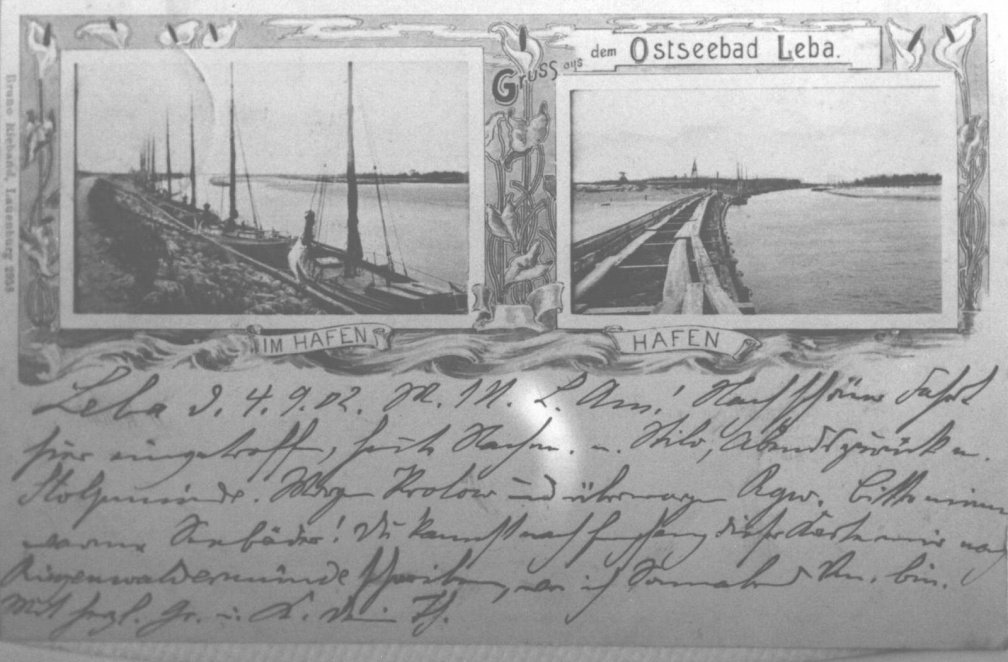 Gruss aus dem Ostseebad Leba.
Bruno Richard, Lauenburg
IM HAFEN
HAFEN
Leba d. 4.9.02. M. l. Nach schöner Fahrt
hier eingetroff, heute Nachm. n. Stilo, Abends zurück n.
Stolpmünde. Morgen Krolow und übermorgen Rgw. Bitte nimm
warme Seebäder! Du kannst nach Empfang dieser Karte mir nach
Rügenwaldermünde schreiben, wo ich Sonnabend Vm. bin.
Mit herzl. Gr. u. K. Dein